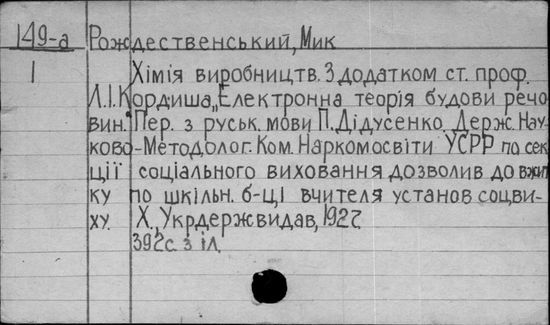 149-а Рождественський, Мик
1 Хімія виробництв. З додатком ст. проф.
Л.І. Кордиша „Електронна теорія будови речо
вин." Пер. з руськ. мови П. Дідусенко. Держ. Нау-
ково-Методолог. Ком. Наркомосвіти УСРР по сек
ції соціального виховання дозволив до вжит
ку по шкільн. б-ці вчителя установ соцви-
ху. Х., Укрдержвидав, 1927
392с. з іл.